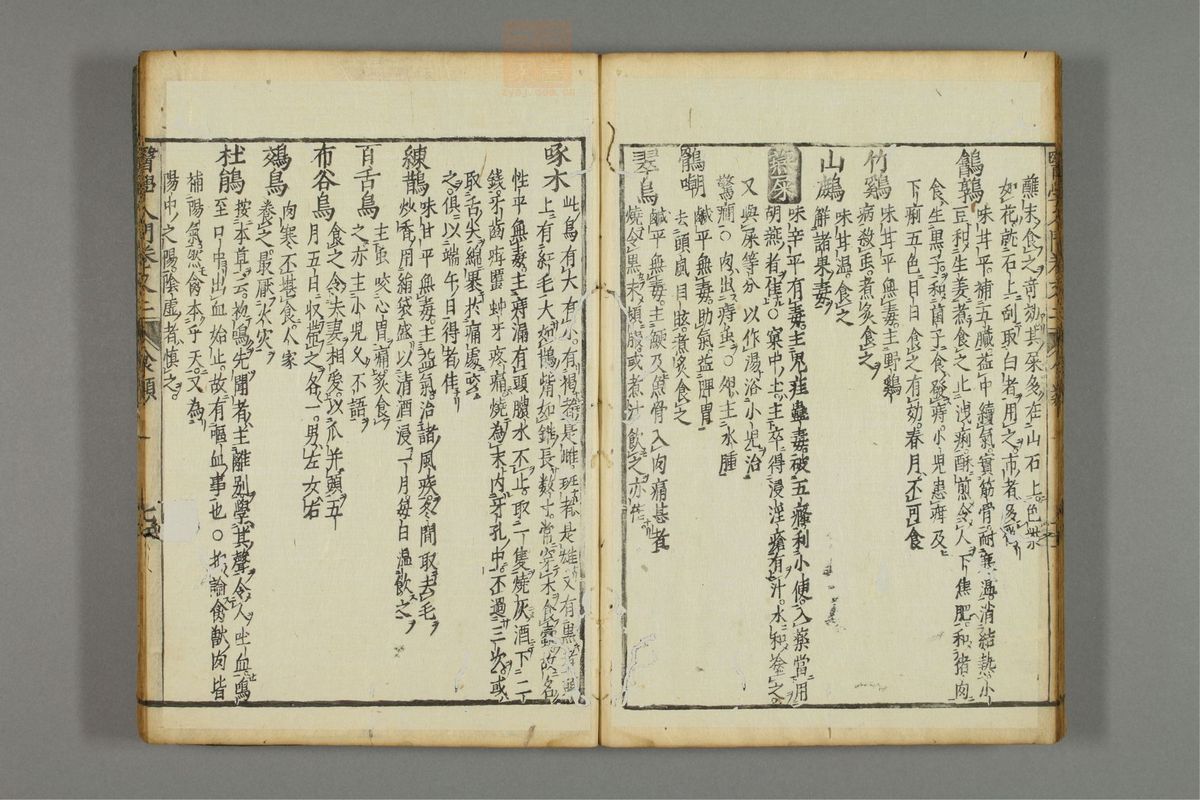 蘸末食之奇効其屎多在山石上色紫
如花就石上刮取白者用之市者多僞
鵪鶉味甘平補五臟益中續氣實筋骨耐寒溫消結熱小
豆和生姜煮食之止洩痢酥煎令人下焦肥和猪肉
食生黑子和菌子食發痔小兒患疳及
下痢五色旦日食之有効春月不可食
竹鷄味甘平無毒主野鷄
病殺䖝煮炙食之
山鷓味甘溫食之
解諸果毒
燕屎味辛平有毒主兒疰蠱毒破五癃利小便入藥當用
胡燕者佳○窠中土主卒得浸淫瘡有汁水和塗之
又與屎等分以作湯浴小兒治
驚癎○肉出痔䖝○卵主水腫
鶻嘲鹹平無毒助氣益脾胃
去頭風目眩煮炙食之
翠鳥鹹平無毒主鯁及魚骨入肉痛甚者
燒令黑末頓服或煮汁飲之亦佳
啄木此鳥有大有小有褐者是雌斑者是雄又有黑者
上有紅毛大如鵲觜如錐長数寸常穿木食蠹故名
性平無毒主痔漏有頭膿水不止取一隻燒灰酒下二
錢牙齒疳䘌蚛牙疼痛燒為末內牙孔中不過三次或
取舌尖綿裹於痛處咬
之俱以端午日得者佳
練鵲味甘平無毒主益氣治諸風疾冬間取去毛
炒香用絹袋盛以清酒浸一月每白溫飲之
百舌鳥主䖝咬心胃痛炙食
之亦主小兒久不語
布谷鳥食之令夫妻相愛以爪并頭五
月五日収帶之各一男左女右
鵁鳥肉寒不堪食人家
養之最厭火灾
杜鵑按本草云初鳴先聞者主離別學其聲令人吐血鳴
至口中出血始止故有嘔血事也○抑論禽獸肉皆
補陽氣然禽本乎天又為
陽中之陽陰虚者慎之
醫學入門卷之二 食類 七